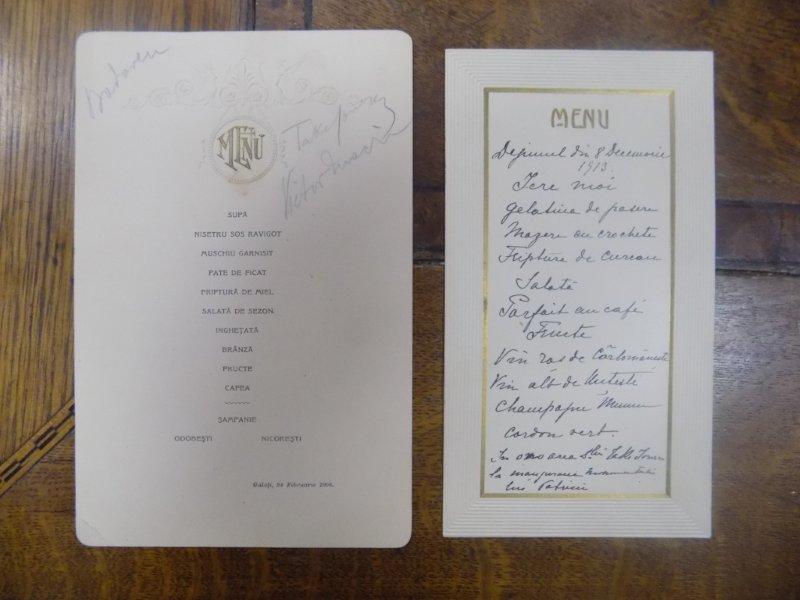 Badareu
MENU
Take Ionescu
Victor
SUPĂ
NISETRU SOS RAVIGOT
MUSCHIU GARNISIT
PATE DE FICAT
FRIPTURĂ DE MIEL
SALATĂ DE SEZON
INGHEȚATĂ
BRÂNZĂ
FRUCTE
CAFEA
ȘAMPANIE
ODOBEȘTI NICOREȘTI
Galați, 24 Februarie
MENU
Dejunul din 8 Decemvrie
1913.
Icre moi
gelatina de pasere
Mazere cu crochete
Friptura de curcan
Salată
Parfait au café
Fructe
Vin ros de
Vin alb de
Champagne Mumm
cordon vert.
In onoarea Take Ionescu
la inaugurarea monumentului
lui